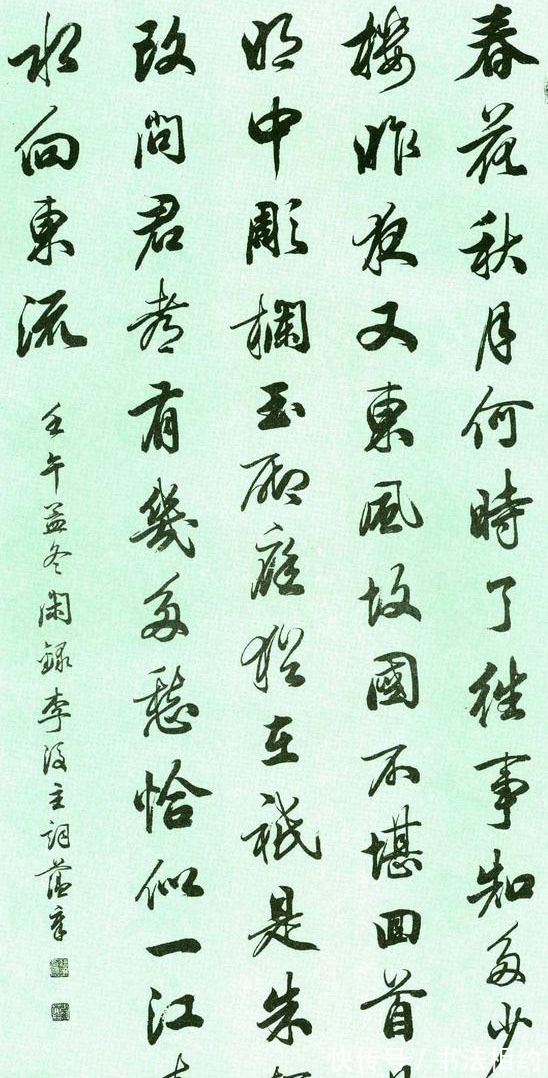 春花秋月何時了往事知多少
樓昨夜又東風故國不堪回首
明中彫欄玉砌應猶在祇是朱
改問君都有幾多愁恰似一江
水向東流
壬午孟冬閑錄李後主詞
快传号 / 书法相约